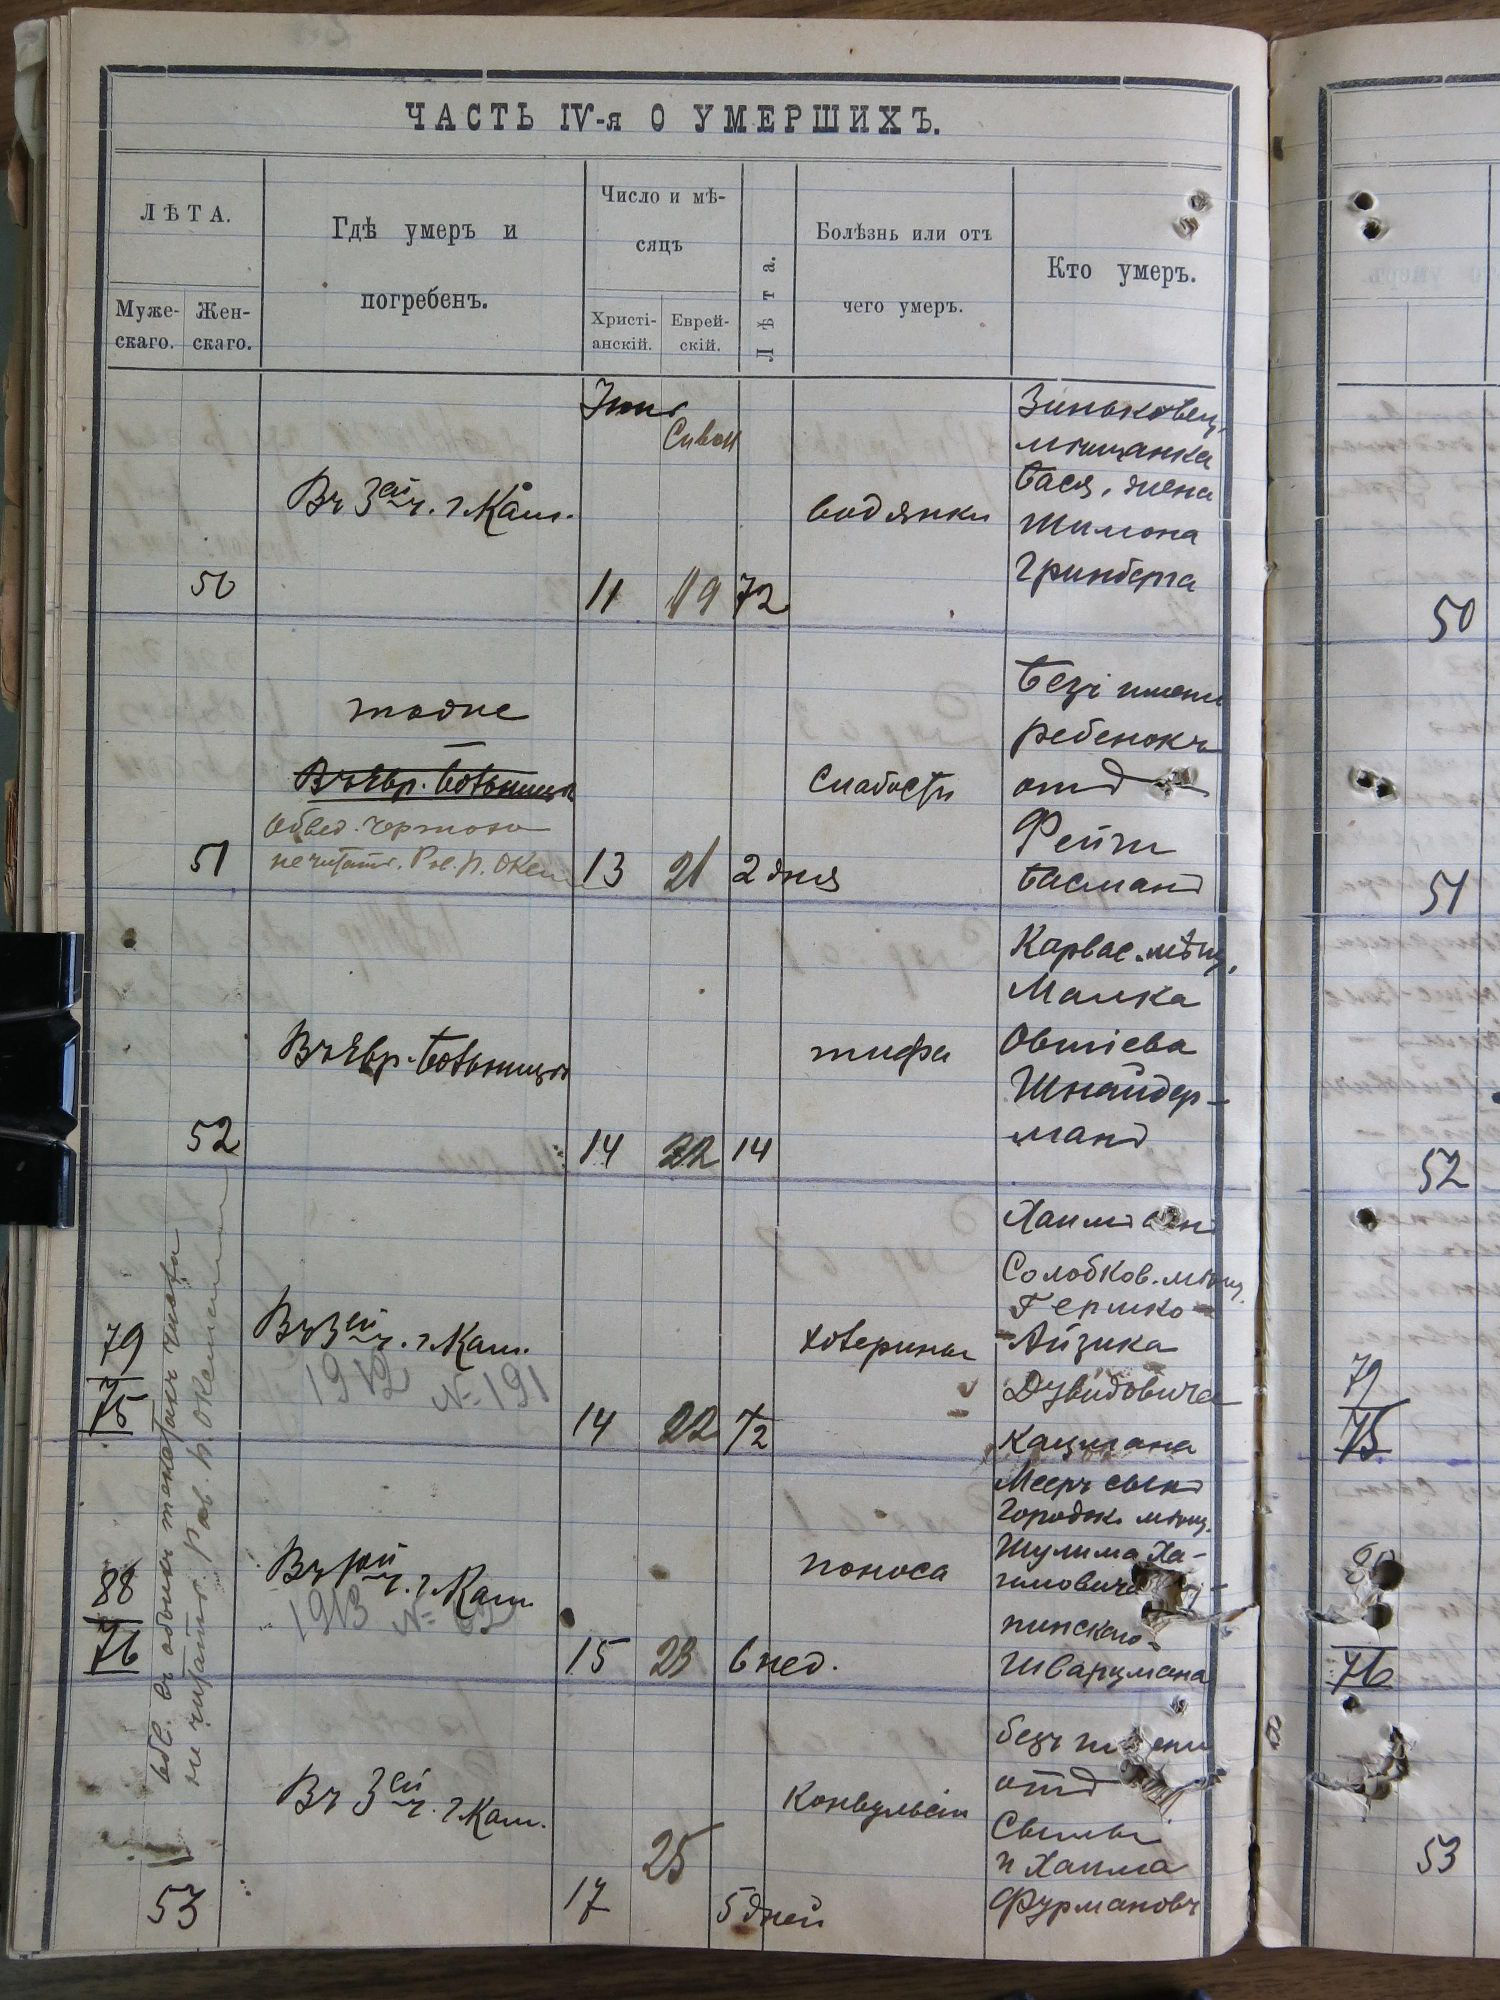 ЧАСТЬ IV-я О УМЕРШИХЪ.
ЛѢТА.
Муже-
скаго.
Жен-
скаго.
Гдѣ умеръ и
погребенъ.
Число и мѣ-
сяцъ
Христі-
анскій.
Еврей-
скій.
Лѣта.
Болѣзнь или отъ
чего умеръ.
Кто умеръ.
50
Въ 3ей ч. г. Кам.
Іюнь
11
Сиван
19
72
водянки
Зиньковец.
мѣщанка
Бася, жена
Шимона
Гринберга
50
51
тоже
Въ Евр. больницѣ
Обвед. чертою
не читать.
13
21
2 дня
слабости
Безъ имени
ребенокъ
отъ
Фейги
Басманъ
51
52
Въ Евр. больницѣ
14
22
14
тифа
Карвас. мѣщ.
Малка
Овшіева
Шнайдер-
манъ
52
79
75
Въ 3ей ч. г. Кам.
1912 № 191
14
22
1/2
холерины
Хаимъ сынъ
Солобков. мѣщ.
Гершко-
Айзика
Дувидовича
Кацмана
79
75
88
76
Въ ч. г. Кам.
1913 №
15
23
6 нед.
поноса
Мееръ сынъ
Городок. мѣщ.
Шулима Ха-
имовича
пинскаго-
Шварцмана
76
обв. въ
не читать.
53
Въ 3ей ч. г. Кам.
17
25
5 дней
Конвульсіи
безъ имени
отъ
и Хаима
Фурмановъ
53